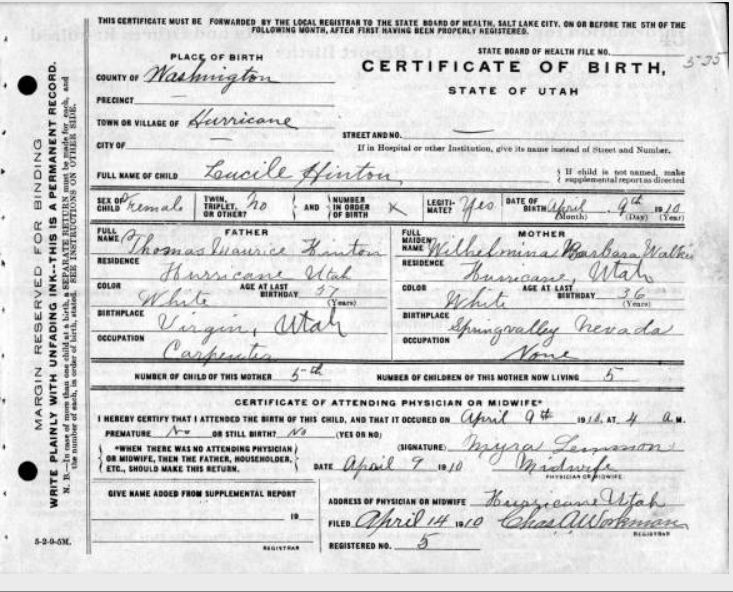 THIS CERTIFICATE MUST BE FORWARDED BY THE LOCAL REGISTRAR TO THE STATE BOARD OF HEALTH, SALT LAKE CITY, ON OR BEFORE THE 5TH OF THE
FOLLOWING MONTH, AFTER FIRST HAVING BEEN PROPERLY REGISTERED.
PLACE OF BIRTH
STATE BOARD OF HEALTH FILE NO. 535
COUNTY OF Washington
CERTIFICATE OF BIRTH,
STATE OF UTAH
PRECINCT —
TOWN OR VILLAGE OF Hurricane
STREET AND NO. —
CITY OF —
If in Hospital or other Institution, give its name instead of Street and Number.
FULL NAME OF CHILD Lucile Hinton { If child is not named, make
supplemental report as directed
SEX OF CHILD Female TWIN, TRIPLET, OR OTHER? No AND NUMBER IN ORDER OF BIRTH x LEGITIMATE? Yes DATE OF BIRTH April 9th 1910
(Month) (Day) (Year)
FATHER
FULL NAME Thomas Maurice Hinton
RESIDENCE Hurricane Utah
COLOR White AGE AT LAST BIRTHDAY 37 (Years)
BIRTHPLACE Virgin, Utah
OCCUPATION Carpenter
MOTHER
FULL MAIDEN NAME Wilhelmina Barbara Walker
RESIDENCE Hurricane, Utah
COLOR White AGE AT LAST BIRTHDAY 36 (Years)
BIRTHPLACE Springvalley Nevada
OCCUPATION None
NUMBER OF CHILD OF THIS MOTHER 5th NUMBER OF CHILDREN OF THIS MOTHER NOW LIVING 5
CERTIFICATE OF ATTENDING PHYSICIAN OR MIDWIFE*
I HEREBY CERTIFY THAT I ATTENDED THE BIRTH OF THIS CHILD, AND THAT IT OCCURED ON April 9th 1910, AT 4 a M.
PREMATURE No OR STILL BIRTH? No (YES OR NO)
*WHEN THERE WAS NO ATTENDING PHYSICIAN
OR MIDWIFE, THEN THE FATHER, HOUSEHOLDER,
ETC., SHOULD MAKE THIS RETURN.
(SIGNATURE) Myra Lemmon
DATE April 9 1910 Midwife
PHYSICIAN OR MIDWIFE
GIVE NAME ADDED FROM SUPPLEMENTAL REPORT
19
REGISTRAR
ADDRESS OF PHYSICIAN OR MIDWIFE Hurricane Utah
FILED April 14 1910 Chas A Workman
REGISTRAR
REGISTERED NO. 5
5-2-9-5M.
MARGIN RESERVED FOR BINDING
WRITE PLAINLY WITH UNFADING INK--THIS IS A PERMANENT RECORD.
N. B.—In case of more than one child at a birth, a SEPARATE RETURN must be made for each, and
the number of each, in order of birth, stated. SEE INSTRUCTIONS ON OTHER SIDE.